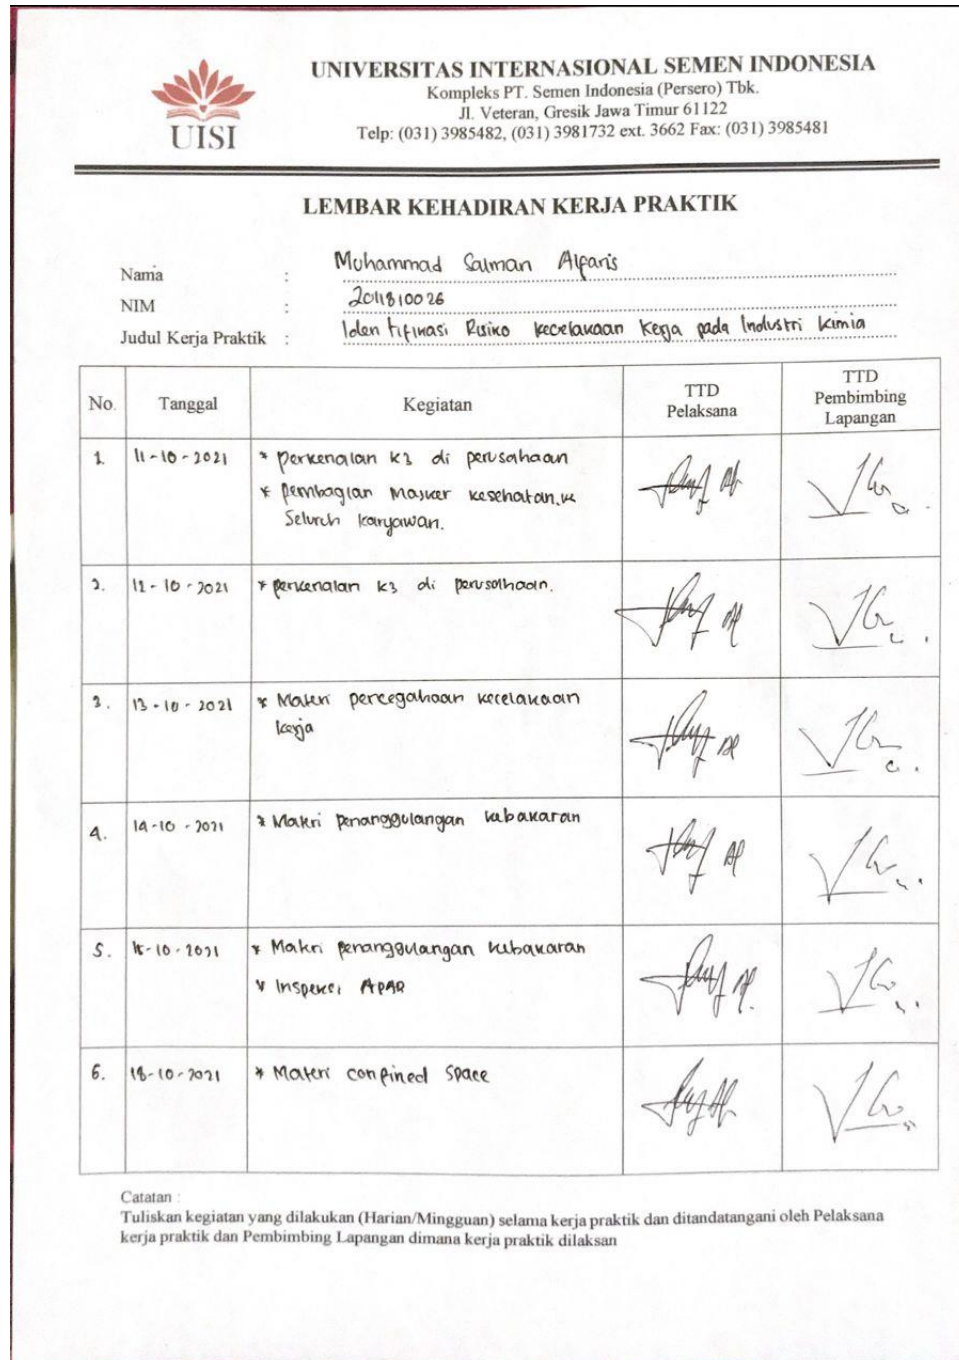 UISI
UNIVERSITAS INTERNASIONAL SEMEN INDONESIA
Kompleks PT. Semen Indonesia (Persero) Tbk.
Jl. Veteran, Gresik Jawa Timur 61122
Telp: (031) 3985482, (031) 3981732 ext. 3662 Fax: (031) 3985481
LEMBAR KEHADIRAN KERJA PRAKTIK
Nama : Muhammad Salman Alfaris
NIM : 2011810026
Judul Kerja Praktik : Identifikasi Risiko kecelakaan Kerja pada Industri kimia
No. Tanggal Kegiatan TTD Pelaksana TTD Pembimbing Lapangan
1. 11-10-2021 * perkenalan k3 di perusahaan
* pembagian Masker kesehatan ke
Seluruh karyawan.
2. 12-10-2021 * perkenalan k3 di perusahaan.
3. 13-10-2021 * Materi percegahaan kecelakaan
kerja
4. 14-10-2021 * Materi penanggulangan kebakaran
5. 15-10-2021 * Materi penanggulangan kebakaran
* Inspeksi APAR
6. 18-10-2021 * Materi confined space
Catatan :
Tuliskan kegiatan yang dilakukan (Harian/Mingguan) selama kerja praktik dan ditandatangani oleh Pelaksana
kerja praktik dan Pembimbing Lapangan dimana kerja praktik dilaksan